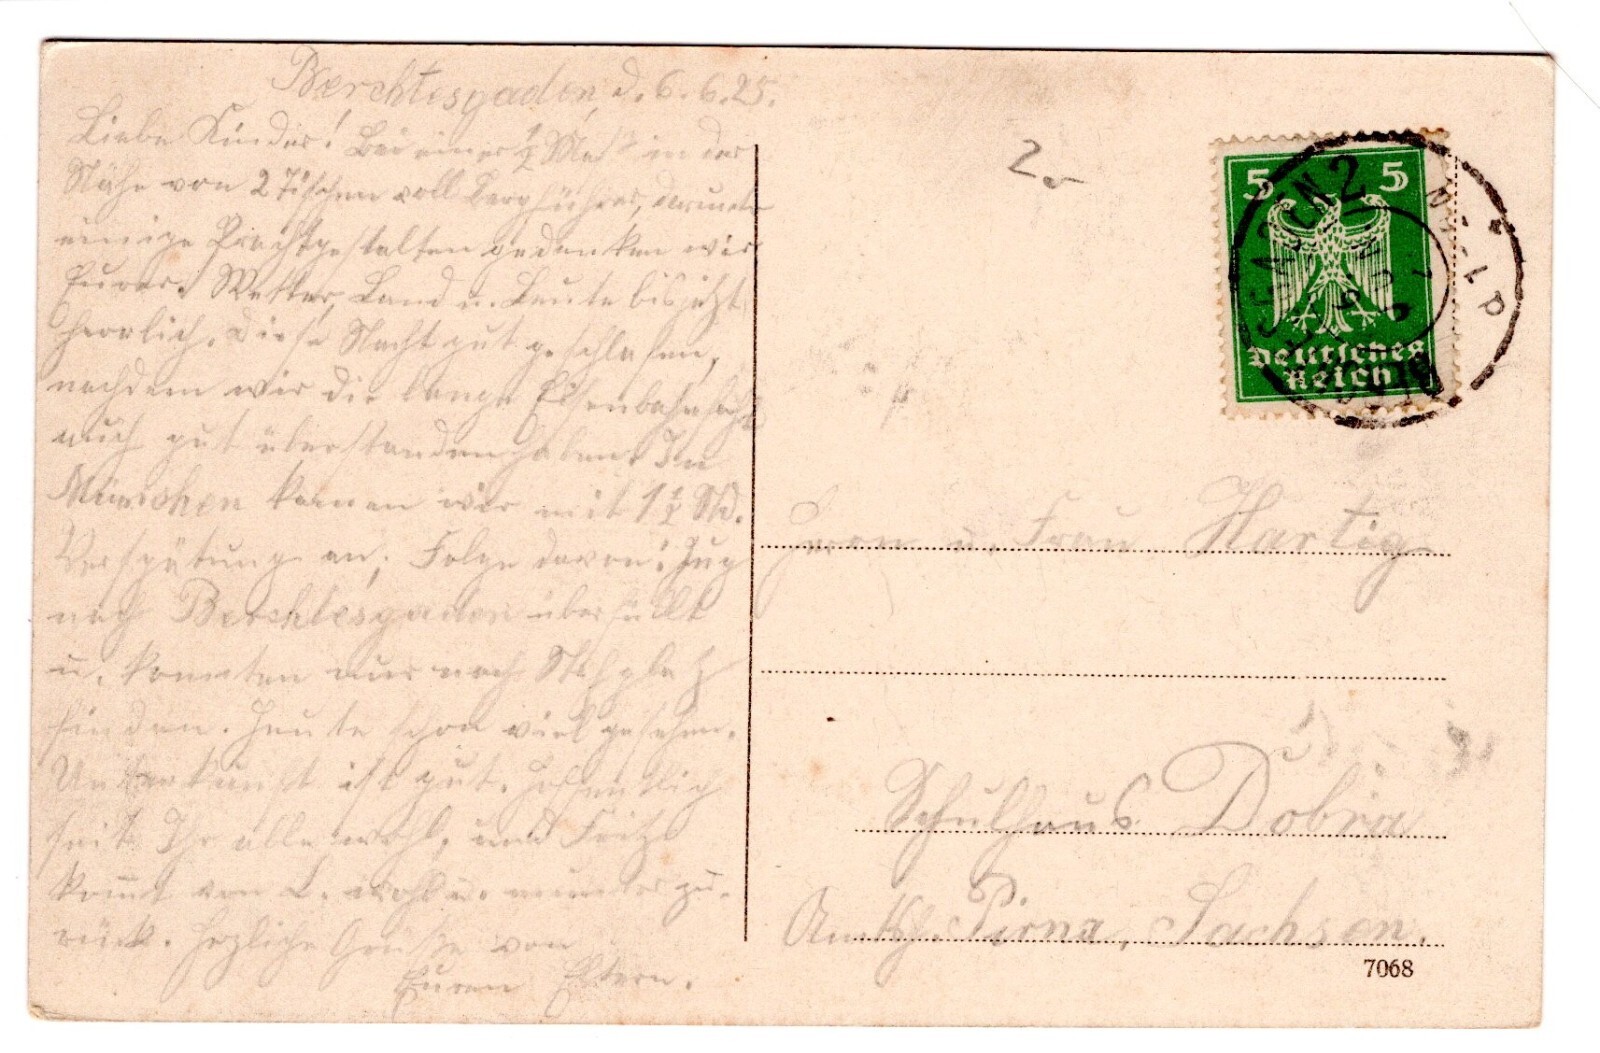 Berchtesgaden, d. 6.6.25.
Liebe Kinder! Bei einer ½ Maß in der
Nähe von 2 Tischen voll Bergführer, darunter
einige Prachtgestalten gedenken wir
Eurer. Wetter, Land u. Leute bis jetzt
herrlich. Diese Nacht gut geschlafen,
nachdem wir die lange Eisenbahnfahrt
auch gut überstanden haben. In
München kamen wir mit 1½ Std.
Verspätung an; Folge davon: Zug
nach Berchtesgaden überfüllt
u. konnten nur noch Stehplatz
finden. Heute schon viel gesehen.
Unterkunft ist gut. Hoffentlich
seit Ihr alle wohl, und Fritz
kom̅t von L. wohl u. munter zu-
rück. Herzliche Grüße von
Euren Eltern.
2
5 5
Deutsches
Reich
Herrn u. Frau Hartig
Schulhaus Dobra
Amtsh. Pirna, Sachsen.
7068